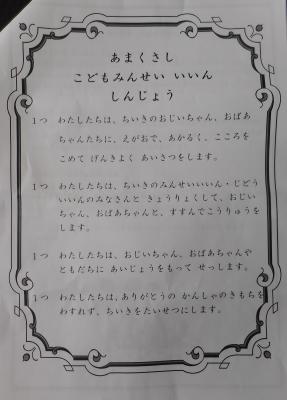 あまくさし
こどもみんせい いいん
しんじょう
1つ わたしたちは、ちいきのおじいちゃん、おばあ
ちゃんたちに、えがおで、あかるく、こころを
こめて げんきよく あいさつをします。
1つ わたしたちは、ちいきのみんせいいいん・じどう
いいんのみなさんと きょうりょくして、おじい
ちゃん、おばあちゃんと、すすんでこうりゅうを
します。
1つ わたしたちは、おじいちゃん、おばあちゃんや
ともだちに あいじょうをもって せっします。
1つ わたしたちは、ありがとうの かんしゃのきもちを
わすれず、ちいきをたいせつにします。